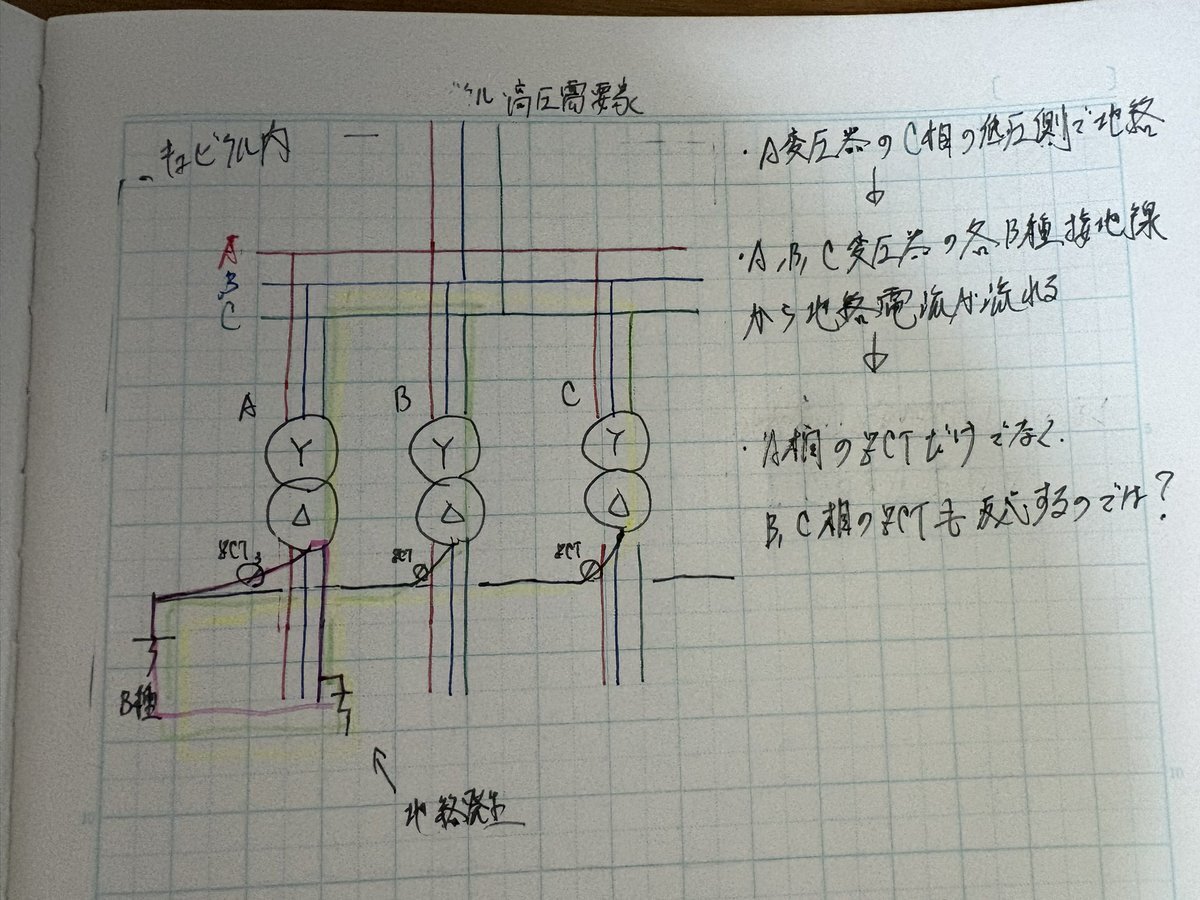 高圧需要家
キュービクル内
・A変圧器のC相の低圧側で地絡
↓
・A,B,C変圧器の各B種接地線
から地絡電流が流れる
↓
・A相のZCTだけでなく
B,C相のZCTも反応するのでは?
A
B
C
A B C
Y Y Y
Δ Δ Δ
ZCT ZCT ZCT
B種
地絡発生